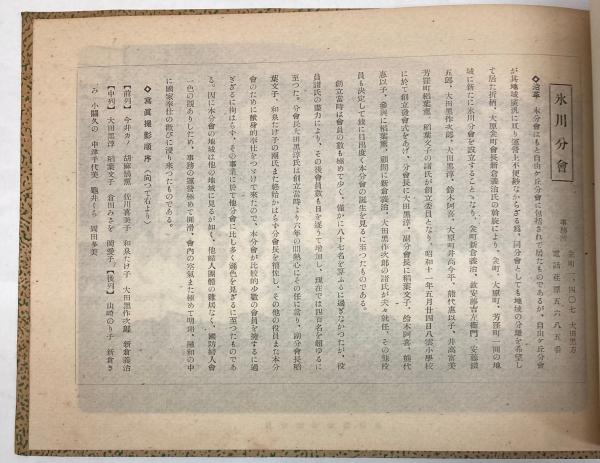 氷川分會
事務所
衾町一四〇七　大田黒方
電話荏原五六八五番
◇沿革　本分會はもと自由ケ丘分會に包括されて居たものであるが、自由ケ丘分會
が其地域廣汎に亙り運營上不便尠なからざる爲、同分會としても地域の分離を希望し
て居た折柄、大原衾町會長新倉義治氏の斡旋により、衾町、大原町、芳窪町一圓の地
域に新たに氷川分會を設立することゝなり、衾町新倉義治、
五郎、大田黒作次郎、大田黒淳、鈴木阿喜、大原町井高今平、能代惠以子、井高富美
芳窪町稲葉薫、稲葉文子の諸氏が創立委員となり、昭和十一年五月廿四日八雲小學校
に於て創立發會式をあげ、分會長に大田黒淳、副分會長に稲葉文子、鈴木阿喜、能代
惠以子、參與に稲葉薫、顧問に新倉義治、大田黒作次郎の諸氏が夫々就任、その他役
員も決定して茲に目出度く本分會の誕生を見るに至つたものである。
創立當時は會員の數も極めて少く、僅かに八十七名を算ふるに過ぎなかつたが、役
員諸氏の盡力により、その後會員數も日を逐うて增加し、現在では四百名を超ゆるに
至つた。分會長大田黒淳氏は創立當時より六年の間熱心にその任に當り、副分會長稲
葉文子、和泉たけ子の兩氏また終始かはらず分會長を補佐し、その他の役員また本分
會のために獻身的奉仕をつゞけて來たので、本分會が比較的少數の會員を擁するに過
ぎざるに拘はらず、その事業に於て他分會に比し多く遜色を見ざるに至つたものであ
る。因に本分會の地域は他の地域に見るが如く、他婦人團體の錯居なく、國防婦人會
一色の觀ありしため、事務の運營極めて圓滑、會內の空氣また極めて明朗、融和の中
に國家奉仕の歡びに浸り來つたものである。
◇寫眞撮影順序（向つて右より）
【前列】今井カノ　胡麻鶴薫　佐川喜美子　和泉たけ子　大田黒作次郎　新倉義治
【中列】大田黒淳　稲葉文子　倉田みさを　關愛子　【後列】山崎のり子　新倉き
み　小關久の　中津千代美　龜井くら　岡田多美